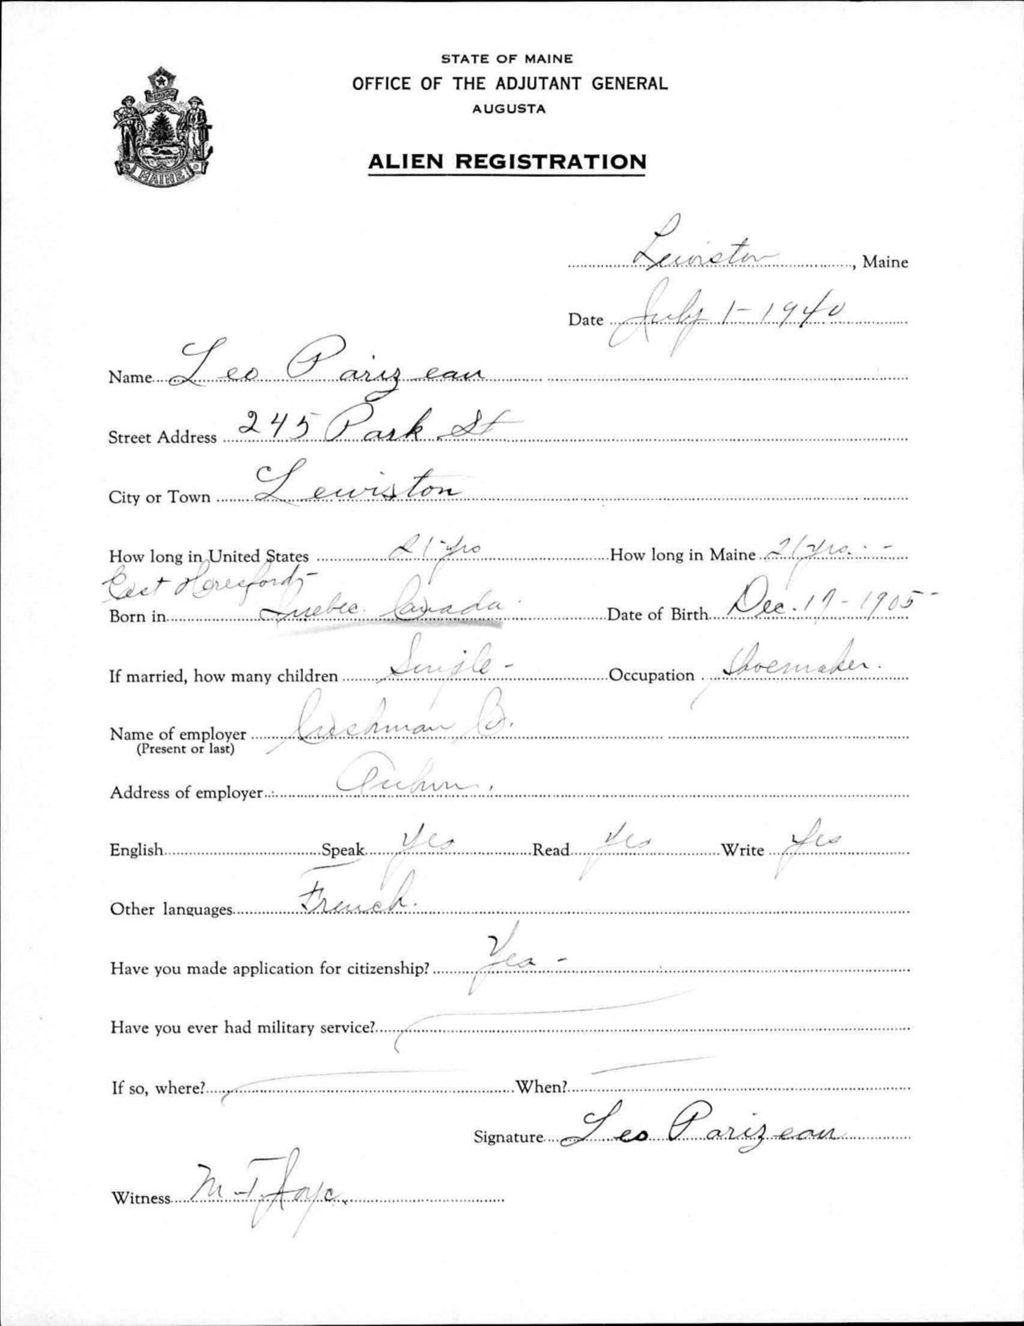 STATE OF MAINE
OFFICE OF THE ADJUTANT GENERAL
AUGUSTA
ALIEN REGISTRATION
MAINE
Lewiston, Maine
Date July 1-1940
Name Leo Parizeau
Street Address 245 Park St
City or Town Lewiston
How long in United States 21-yrs How long in Maine 21 yrs. -
East Hereford -
Born in Quebec. Canada. Date of Birth Dec. 19-1905-
If married, how many children Single - Occupation Shoemaker.
Name of employer Cushman
(Present or last)
Address of employer Auburn.
English Speak Yes Read Yes Write Yes
Other languages French.
Have you made application for citizenship? Yes -
Have you ever had military service?
If so, where? When?
Signature Leo Parizeau
Witness M